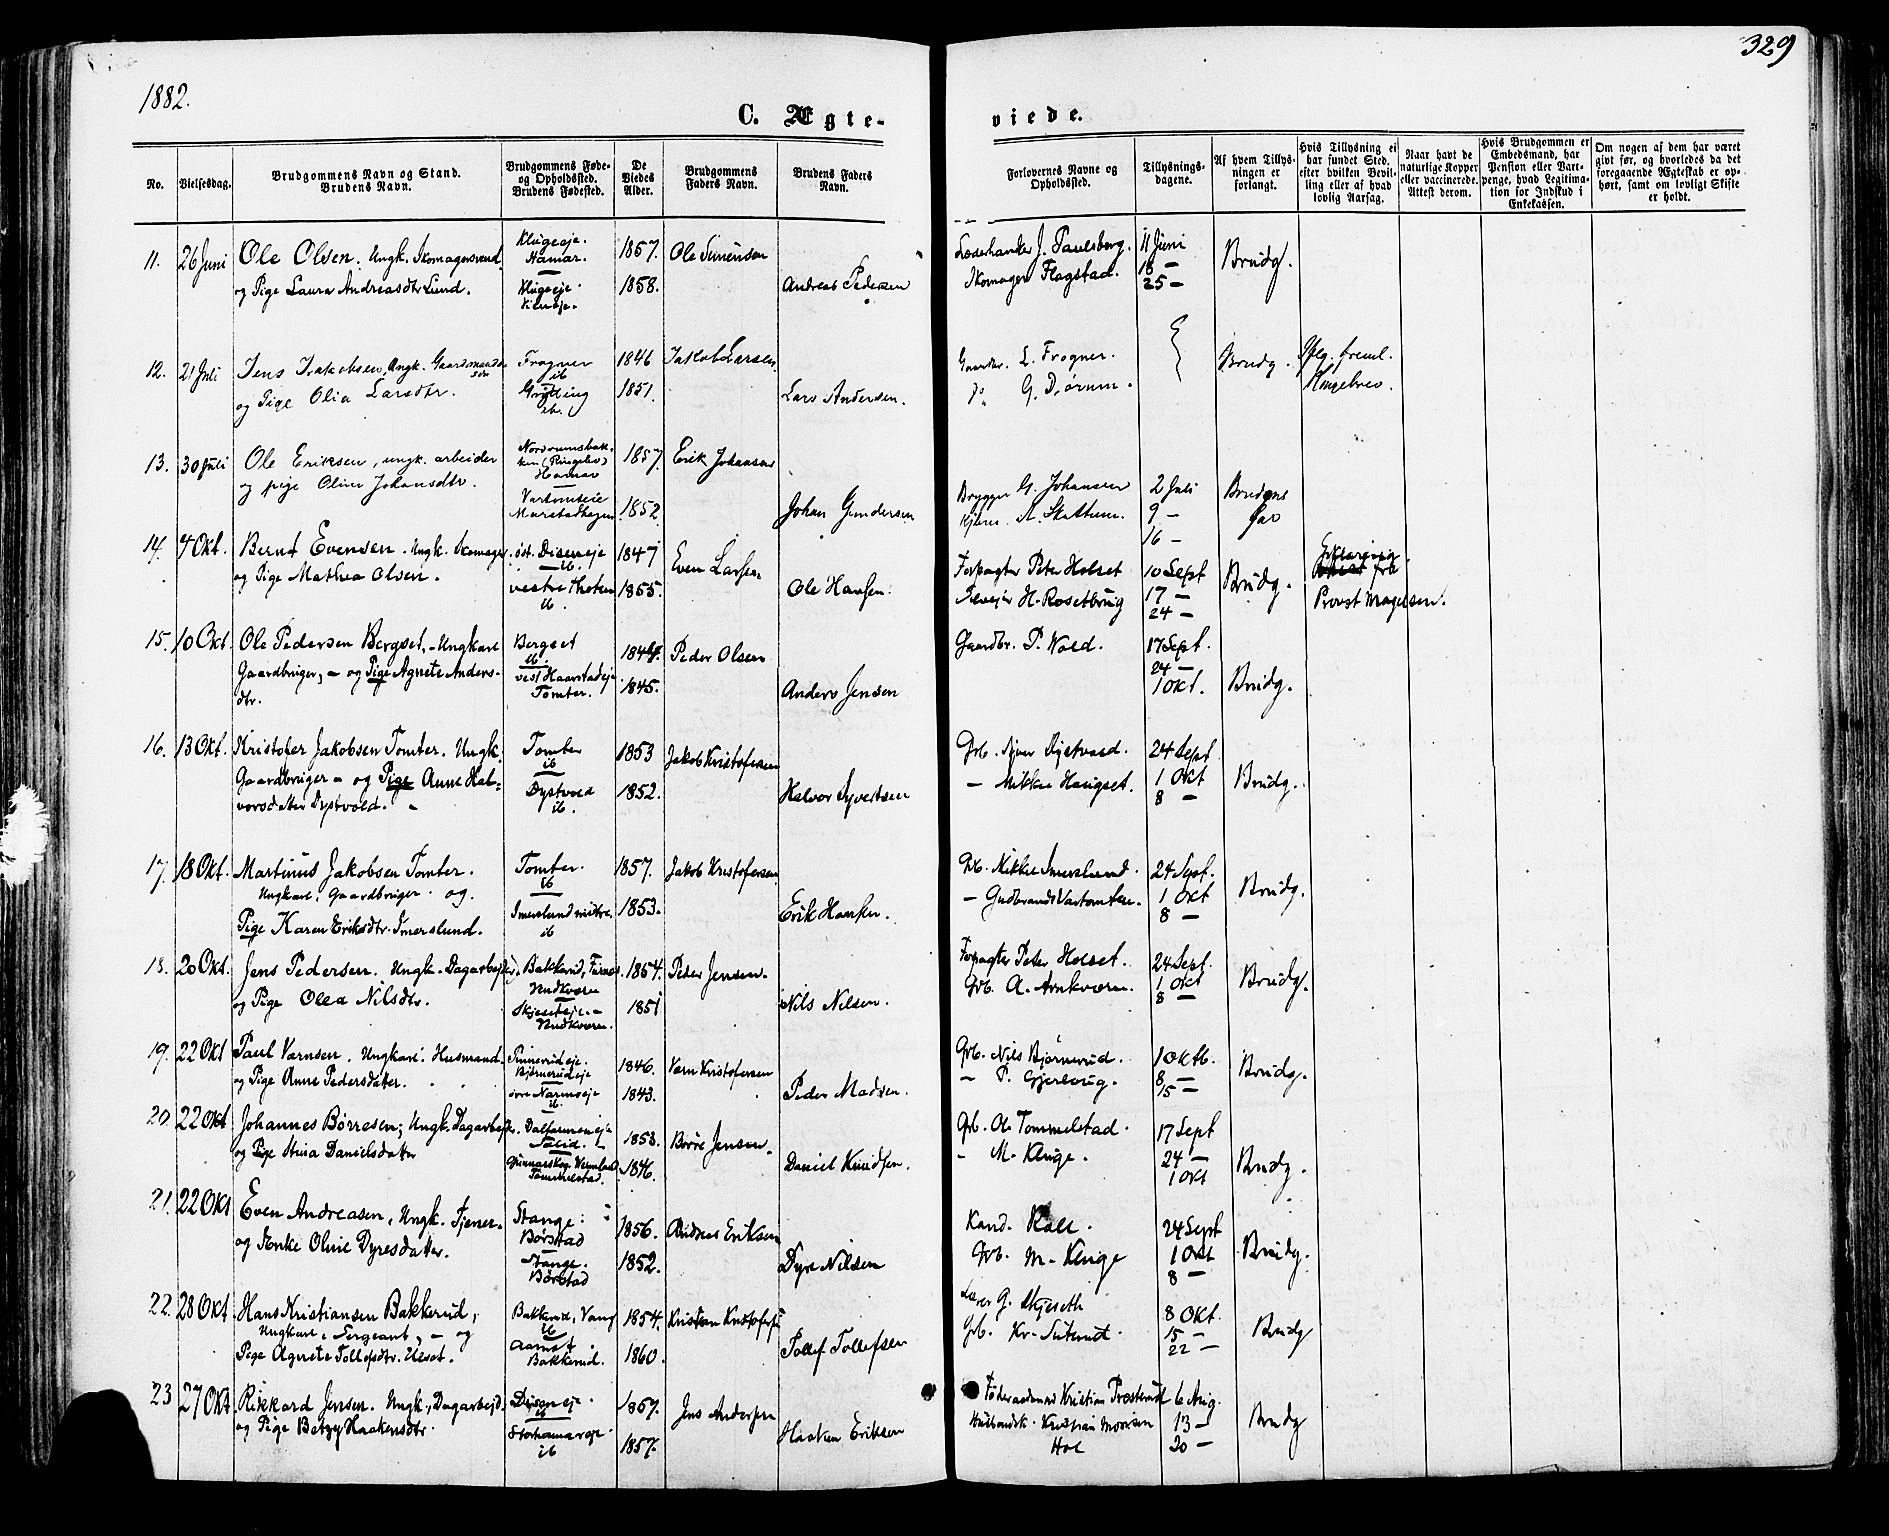 329
1882.
C. Ægte-
viede.
No.
Vielsesdag.
Brudgommens Navn og Stand.
Brudens Navn.
Brudgommens Føde-
og Opholdssted.
Brudens Fødested.
De
Viedes
Alder.
Brudgommens
Faders Navn.
Brudens Faders
Navn.
Forlovernes Navne og
Opholdssted.
Tillysnings-
dagene.
Af hvem Tillys-
ningen er
forlangt.
Hvis Tillysning ei
har fundet Sted,
efter hvilken Bevil-
ling eller af hvad
lovlig Aarsag.
Naar havt de
naturlige Kopper
eller vaccinerede.
Attest derom.
Hvis Brudgommen er
Embedsmand, har
Pension eller Vart-
penge, hvad Legitima-
tion for Indskud i
Enkekassen.
Om nogen af dem har været
givt før, og hvorledes da det
foregaaende Ægteskab er op-
hørt, samt om lovligt Skifte
er holdt.
11. 26 Juni Ole Olsen. Ungk. Skomagersvend. Klugeeje. Hamar. 1857. Ole Simensen Læderhandler J. Paulsberg. 11 Juni Brudg.
og Pige Laura Andreasdtr Lund. Klugeeje. 1858. Andreas Pedersen Skomager Flagstad. 18 —
25 —
12. 21 Juli Jens Jakobsen, Ungk. Gaardmands-
søn Frogner ib 1846 Jakob Larsen L. Frogner. Brudg.
og Pige Olia Larsdtr. Grytting ib. 1851. Lars Andersen. G. Dørum. Kongebrev.
13. 30 Juli Ole Eriksen, ungk. arbeider (Ringebu) Hamar 1857. Erik Johansen
og pige Oline Johansdtr. 1852. Johan Gundersen Brygger G. Johansen 2 Juli Brudens Far
A. Skattum. 9 —
16 —
14. 4 Okt. Bernt Evensen. Ungk. Skomager. øst. Diseneje ib. 1847 Even Larsen Forpagter Peter Holset 10 Sept Brudg. Erklæring fra
og Pige Mathea Olsen. vestre Thoten ib. 1855. Ole Hansen. H. Rosetbrug 17 — Provst Magelsen.
24 —
15. 10 Okt. Ole Pedersen Bergset, - Ungkarl Bergset ib. Peder Olsen Gaardbr. P. Wold. 17 Sept.
Gaardbruger, - og Pige Agnete Anders- vest Haarstadeje 24 —
dtr. Tomter. 1845. Anders Jensen 1 Okt. Brudg.
16. 13 Okt. Kristofer Jakobsen Tomter. Ungk. Tomter ib 1853 Jakob Kristofersen Grb. Syver Dystvold. 24 Sept
Gaardbruger - og Pige Anne Hal- Dystvold ib. 1852. Halvor Syvertsen — Mikkel Haugset. 1 Okt Brudg.
vorsdatter Dystvold. 8 —
17. 18 Okt. Martinus Jakobsen Tomter. Tomter. ib 1857. Jakob Kristofersen Grb. Mikkel Imerslund. 24 Sept.
Ungkarl, Gaardbruger. og. — Gudbrand Vartomten. 1 Okt Brudg.
Pige Karen Eriksdtr. Imerslund. Imerslund midtre. ib 1853. Erik Hansen. 8 —
18. 20 Okt. Jens Pedersen. Ungk. Dagarbejder. Bakkerud, Furnes. 1854. Peder Jensen. Forpagter Peter Holset. 24 Sept.
og Pige Olea Nilsdtr. Skjeseteje. 1851 Nils Nilsen. Grb. A. Arnkværn. 1 Okt Brudg.
8 —
19. 22 Okt Paul Varnsen. Ungkarl. Husmand. Bjørnerudeje 1846. Varn Kristofersen Grb. Nils Bjørnerud. 1 Oktb. Brudg.
og Pige Anne Pedersdatter. øvre Narmoeje ib. 1843. Peder Madsen. — P. Gjerlaug. 8 —
15 —
20. 22 Okt Johannes Børresen; Ungk. Dagarbejder. Dalfarmeneje 1853. Børre Jensen. Grb. Ole Tommelstad. 17 Sept
og Pige Stina Danielsdatter Gunnarskog Vermland Tommelstad. 1846. Daniel Knudsen. — M. Kluge. 24 — Brudg.
1 Okt
21. 22 Okt Even Andreasen, Ungk. Tjener. Stange. Børstad 1856. Andreas Eriksen Kand. Roll. 24 Sept
og Enke Oline Dyresdatter. Stange. Børstad 1852. Dyre Nilsen Grb. M. Kluge 1 Okt Brudg.
8 —
22. 28 Okt. Hans Kristiansen Bakkerud, Bakkerud, Vang ib 1854. Kristian Kristofersen Lærer G. Skjeseth 8 Okt.
Ungkarl, Sergeant, - og Grb. Kr. Suterud. 15 — Brudg
Pige Agnete Tollefsdtr. Ulset. Bakkerud. 1860. Tollef Tollefsen 22 —
23 27 Okt. Rikkard Jensen. Ungk., Dagarbejd. Diseneje. ib 1857. Jens Andersen Føderaadsmand Kristian Prosterud 6 Aug.
og Pige Betzy Haakensdtr. Storhamareje. ib 1857. Haaken Eriksen Kristian Moursen 13 — Brudg
Hol 20 —